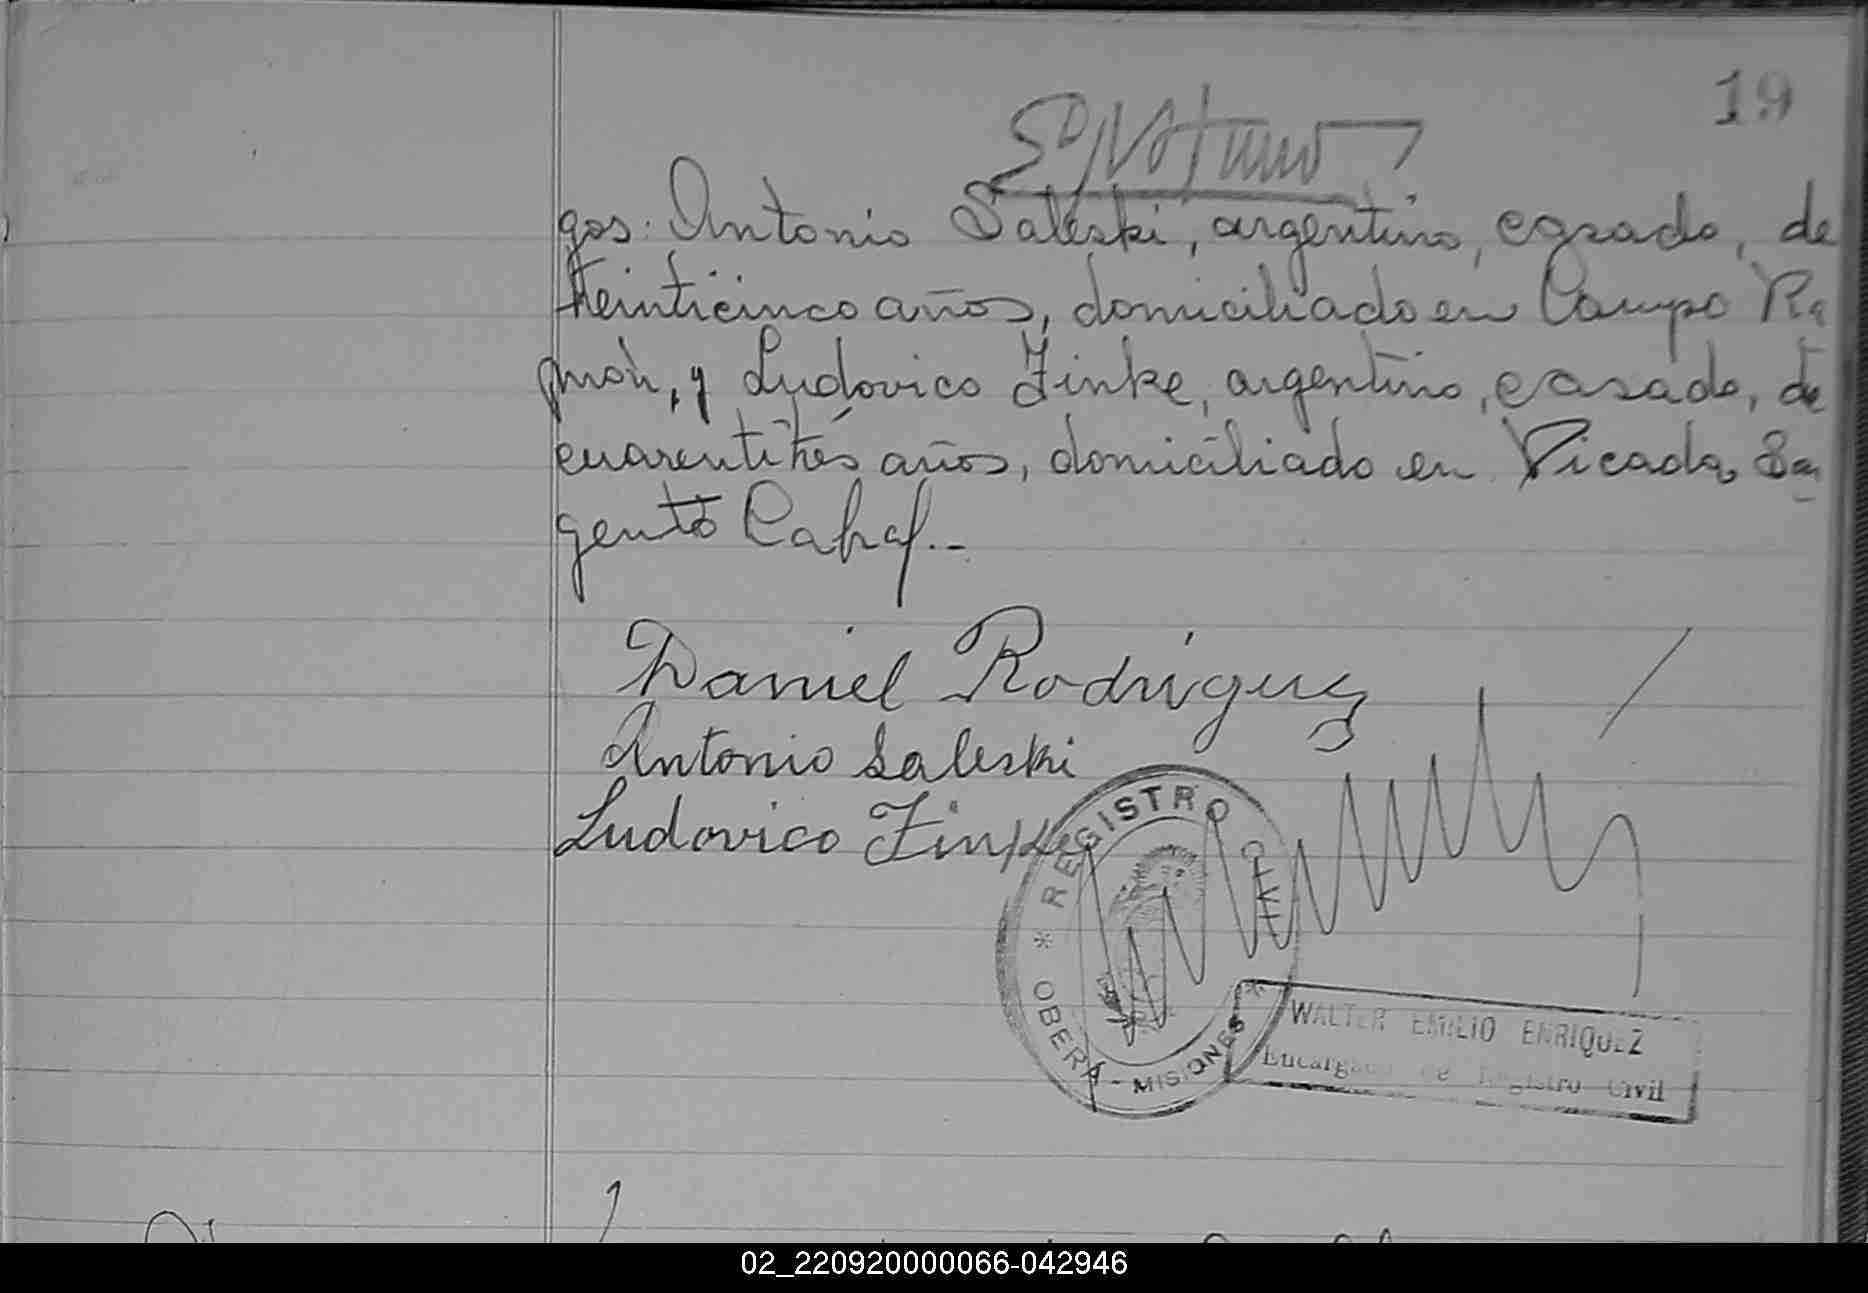 19
gos: Antonio Saleski, argentino, casado, de
veinticinco años, domiciliado en Campo Ra
món, y Ludovico Finke, argentino, casado, de
cuarentitrés años, domiciliado en Picada Sa
gento Cabral.-
Daniel Rodriguez
Antonio Saleski
Ludovico Finke
* REGISTRO CIVIL *
OBERA - MISIONES
WALTER EMILIO ENRIQUEZ
Encargado de Registro Civil
02_220920000066-042946